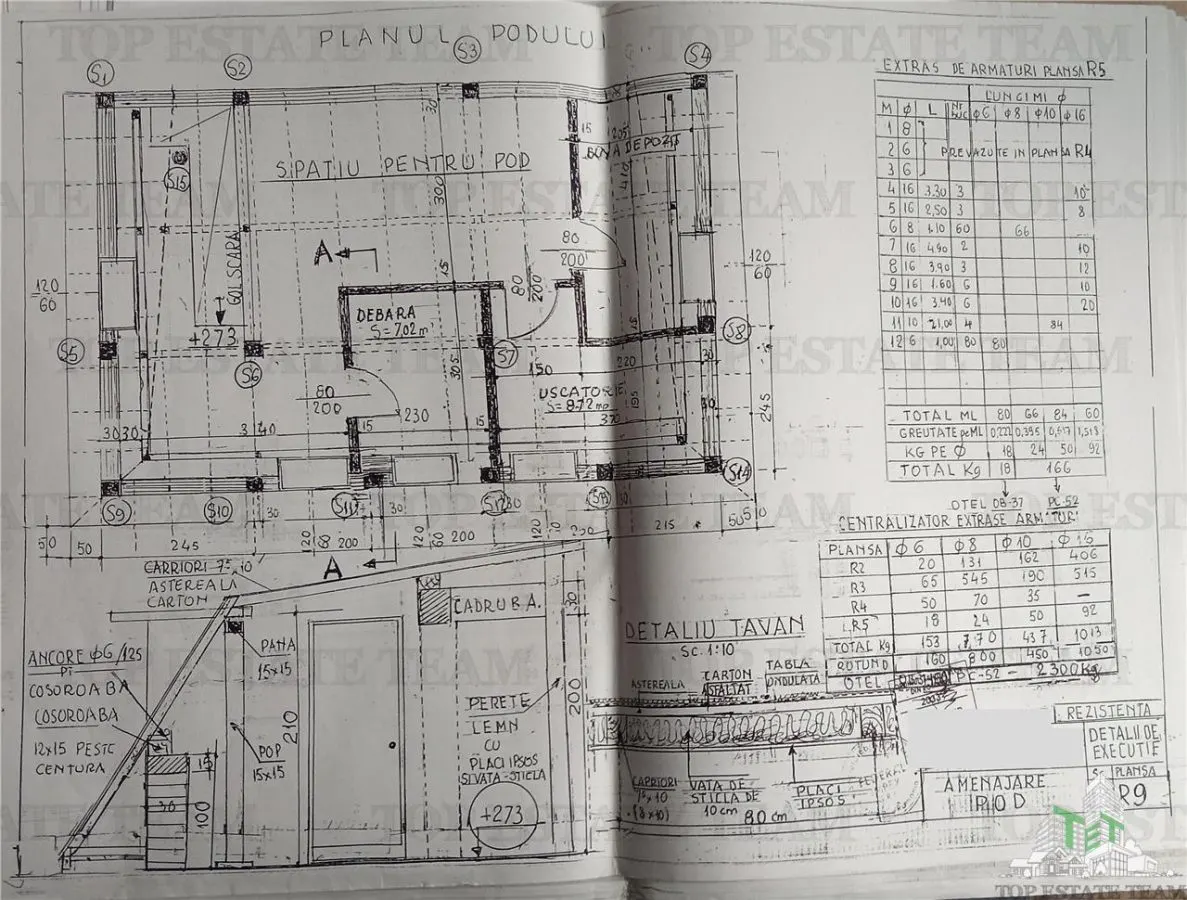 TOP ESTATE TEAM
PLANUL PODULUI
S1
S2
S3
S4
SPATIU PENTRU POD
S15
GOL SCARA
+273
A
80
200
DEBARA
S=7.02 m²
80
200
80
200
120
60
120
60
S5
S6
S7
S8
USCATORIE
S=8.72 mp
150
220
195
370
300
305
15
15
30
245
230
30 30
3 40
15
S9
S10
S11
S12
S13
S14
50
50
245
30
120
80
200
30
120
60
200
120
215
50
A
CAPRIORI 7⁵×10
ASTEREALA
CARTON
ANCORE φ6/125
PT
COSOROABA
COSOROABA
12x15 PESTE
CENTURA
PANA
15x15
POP
15x15
210
15
30
100
CADRU B.A.
PERETE
LEMN
CU
PLACI IPSOS
SI VATA-STICLA
+273
200
30
EXTRAS DE ARMATURI PLANSA R5
LUNGIMI φ
M φ L NR BUC φ6 φ8 φ10 φ16
1 8
2 6 PREVAZUTE IN PLANSA R4
3 6
4 16 3.30 3 10
5 16 2,50 3 8
6 8 1.10 60 66
7 16 4.90 2 10
8 16 3.90 3 12
9 16 1.60 6 10
10 16 3.40 6 20
11 10 21,00 4 84
12 6 1,00 80 80
TOTAL ML 80 66 84 60
GREUTATE pe ML 0,222 0,395 0,617 1,518
KG PE φ 18 24 50 92
TOTAL Kg 18 166
OTEL OB-37 PC-52
CENTRALIZATOR EXTRASE ARMATURI
PLANSA φ6 φ8 φ10 φ16
R2 20 131 162 406
R3 65 545 190 515
R4 50 70 35 —
R5 18 24 50 92
TOTAL Kg 153 770 437 1013
ROTUND 160 800 450 1050
OTEL PC-52 - 2300 Kg
DETALIU TAVAN
SC. 1:10
ASTEREALA
CARTON
ASFALTAT
TABLA
ONDULATA
CAPRIORI
7⁵x10
(8x10)
VATA DE
STICLA DE
10 cm
PLACI
IPSOS
80 cm
REZISTENTA
DETALII DE
EXECUTIE
AMENAJARE
POD
Sc PLANSA
R9
TET
TOP ESTATE TEAM